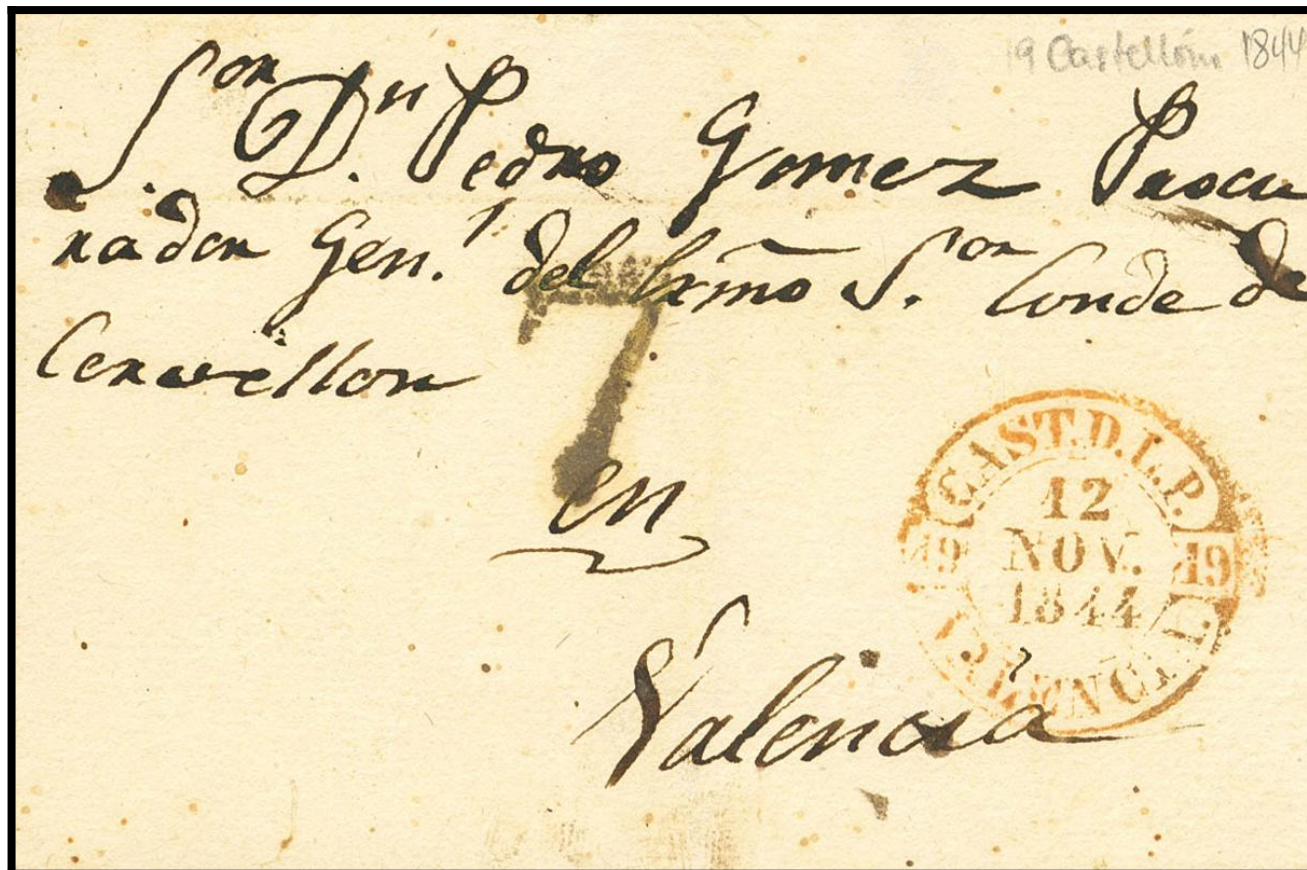 19 Castellón 1844
S.or D.n Pedro Gomez Procu
rador Gen.l del Exmo S.or Conde de
Cervellon
7
en
Valencia
CAST.D.L.P.
19 12 19
NOV.
1844
VALENCIA.